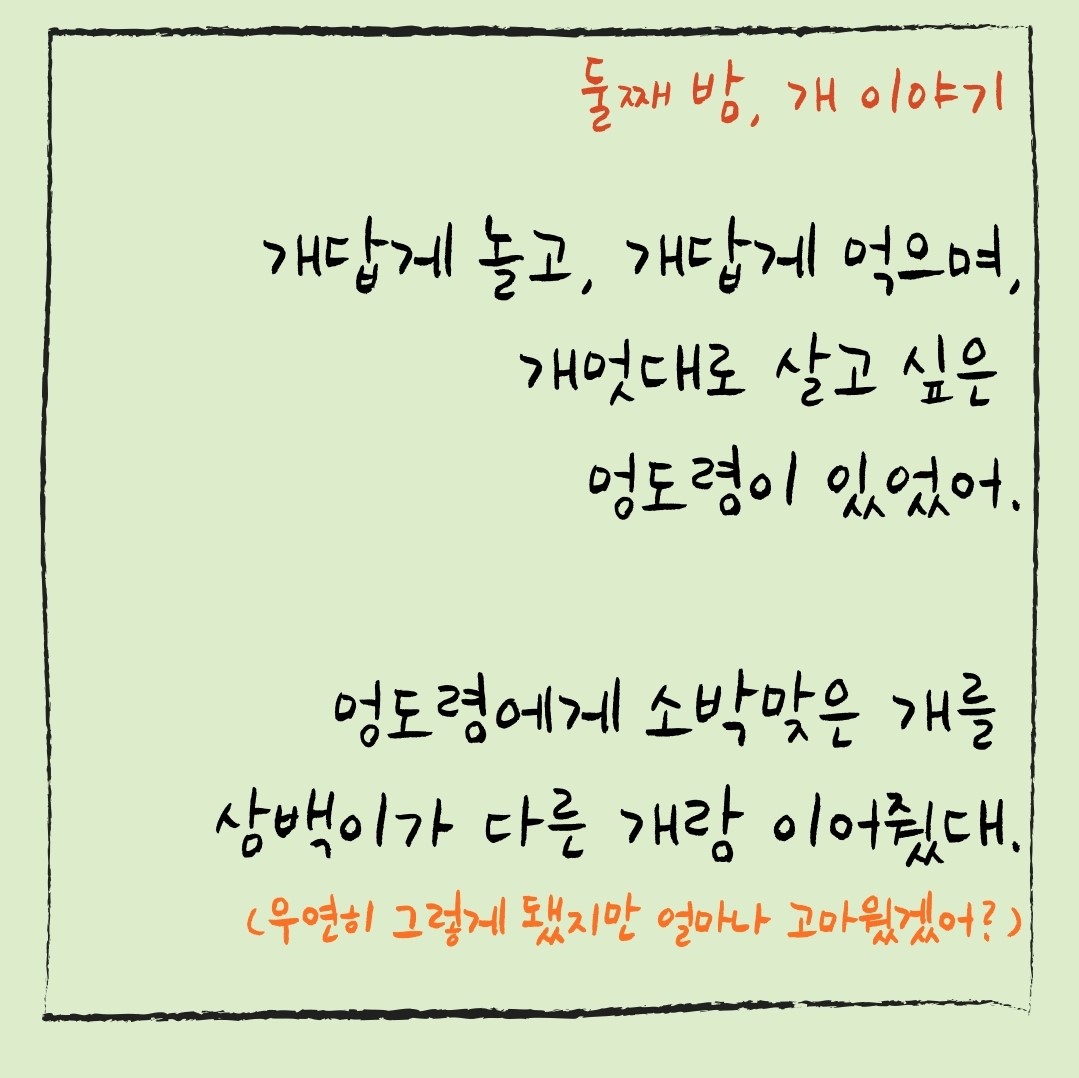 둘째 밤, 개 이야기
개답게 놀고, 개답게 먹으며,
개멋대로 살고 싶은
멍도령이 있었어.
멍도령에게 소박맞은 개를
삼백이가 다른 개랑 이어줬대.
(우연히 그렇게 됐지만 얼마나 고마웠겠어?)